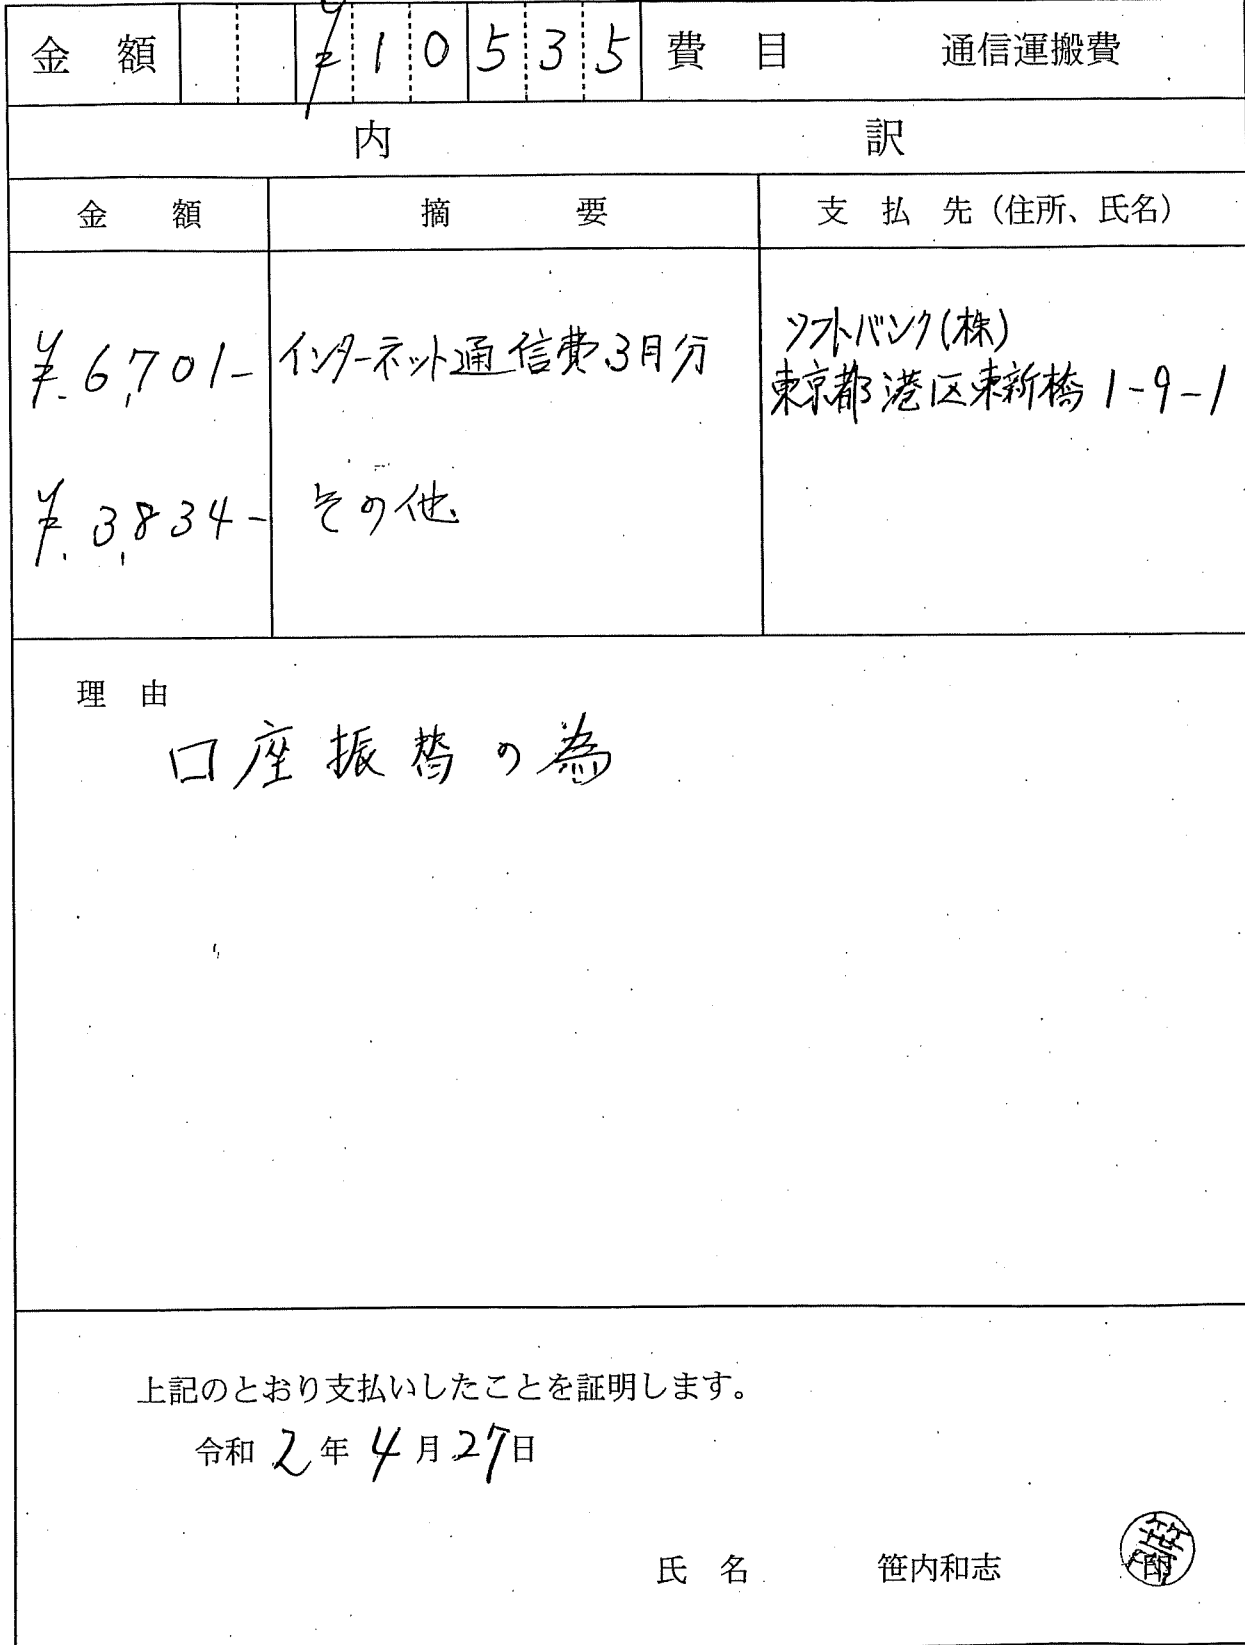 金額 ¥10535 費目 通信運搬費
内訳
金額 摘要 支払先（住所、氏名）
¥.6,701- インターネット通信費3月分 ソフトバンク(株)
東京都港区東新橋1-9-1
¥.3,834- その他
理由
口座振替の為
上記のとおり支払いしたことを証明します。
令和2年4月27日
氏名 笹内和志 印